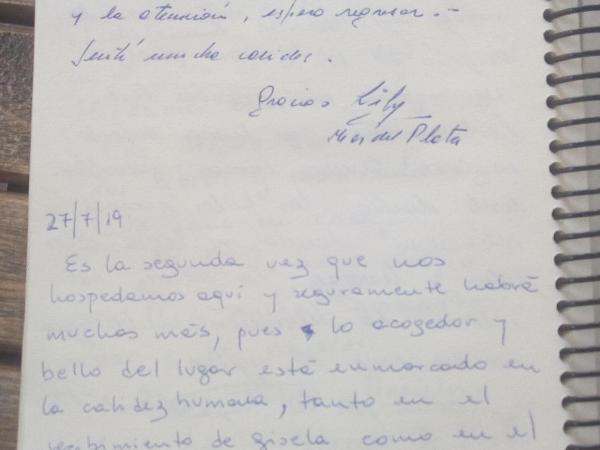 y la atención, espero regresar.-
Sentí mucha calidez.
Gracias Lily
Mar del Plata
27/7/19
Es la segunda vez que nos
hospedamos aquí y seguramente habrá
muchas más, pues lo acogedor y
bello del lugar está enmarcado en
la calidez humana, tanto en el
recibimiento de gisela como en el